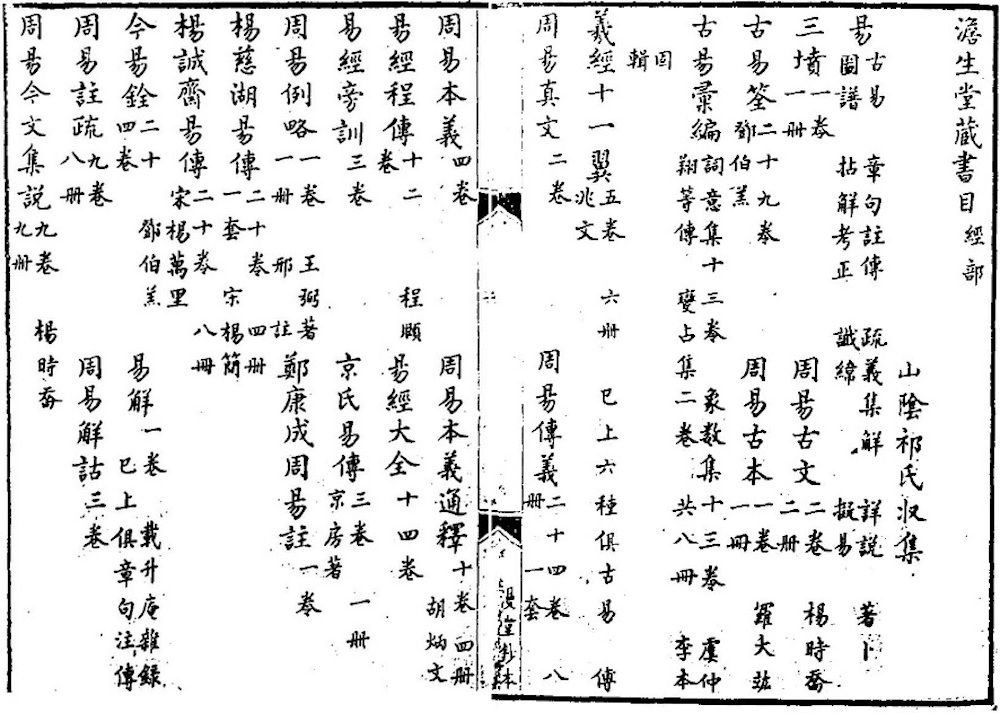 澹生堂藏書目 經部
山陰祁氏收集
易 古易 章句註傳 疏義集解 詳說 蓍卜
圖譜 拈解考正 讖緯 擬易
三墳 一卷 一冊
周易古文 二卷 二冊 楊時喬
古易筌 二十九卷 鄧伯羔
周易古本 一卷 一冊 羅大紘
古易彙編 詞意集十三卷 象数集十三卷 虞仲翔等傳 變占集二卷 共八冊 李本固輯
羲經十一翼 五卷 六冊 傳兆文
已上六種俱古易
周易真文 二卷
周易傳義 二十四卷 八冊 一套
周易本義 四卷
周易本義通釋 十卷 四冊 胡炳文
易經程傳 十二卷 程頤
易經大全 十四卷
易經旁訓 三卷
京氏易傳 三卷 一冊 京房著
周易例略 一卷 一冊 王弼著 邢註
鄭康成周易註 一卷
楊慈湖易傳 二十卷 四冊 一套 宋楊簡
楊誠齋易傳 二十卷 八冊 宋楊萬里
今易銓 二十四卷 鄧伯羔
易解 一卷 載升庵雜録
已上俱章句注傳
周易註疏 九卷 八冊
周易解詁 三卷
周易今文集説 九卷 九冊 楊時喬
漫堂鈔本